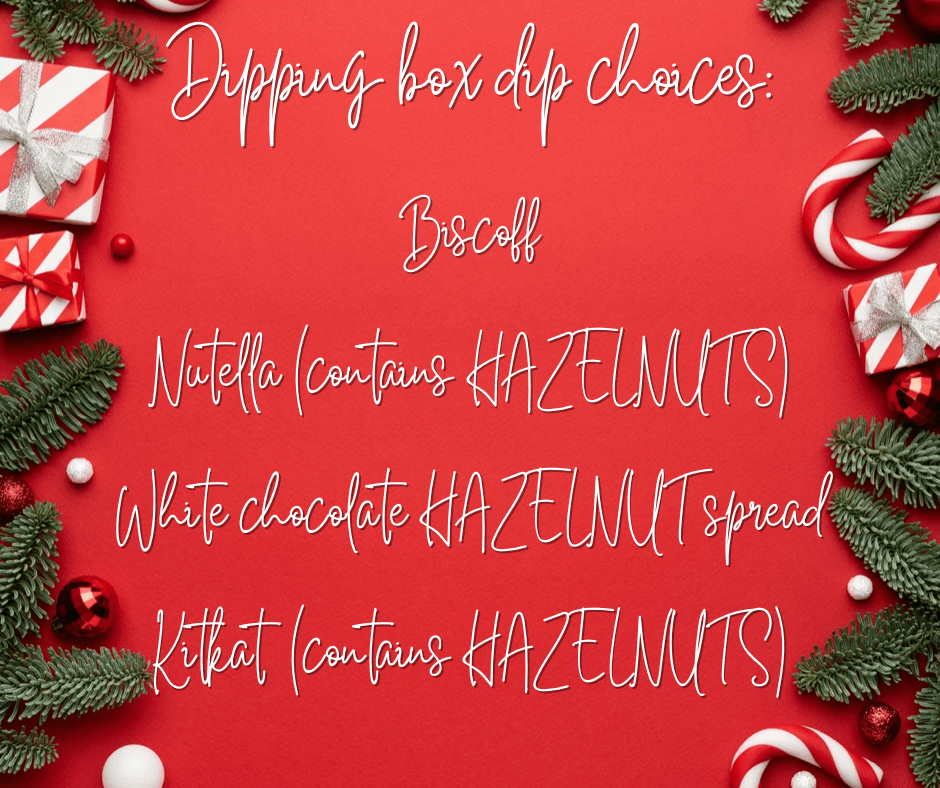 Dipping box dip choices:
Biscoff
Nutella (contains HAZELNUTS)
White chocolate HAZELNUT spread
Kitkat (contains HAZELNUTS)